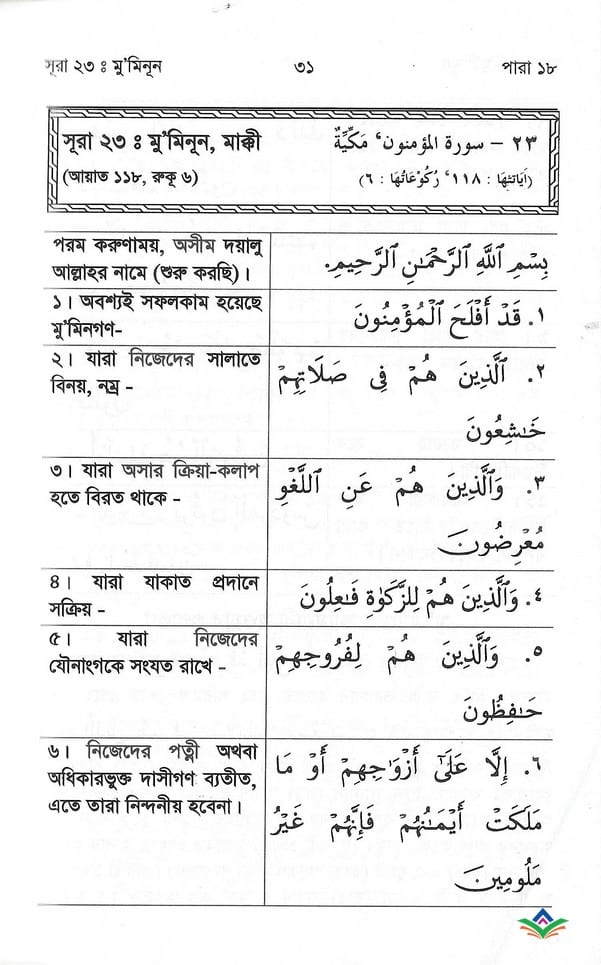 সূরা ২৩ ঃ মু'মিনূন ৩১ পারা ১৮
সূরা ২৩ ঃ মু'মিনূন, মাক্কী ٢٣ – سورة المؤمنون، مَكِّيَّةٌ
(আয়াত ১১৮, রুকূ ৬) (اٰيَاتهَا : ١١٨، رُكُوْعَاتُهَا : ٦)
পরম করুণাময়, অসীম দয়ালু
আল্লাহর নামে (শুরু করছি)।
بِسْمِ اللَّهِ الرَّحْمَـٰنِ الرَّحِيمِ.
১। অবশ্যই সফলকাম হয়েছে
মু'মিনগণ-
١. قَدْ أَفْلَحَ ٱلْمُؤْمِنُونَ
২। যারা নিজেদের সালাতে
বিনয়, নম্র -
٢. ٱلَّذِينَ هُمْ فِى صَلَاتِهِمْ
خَـٰشِعُونَ
৩। যারা অসার ক্রিয়া-কলাপ
হতে বিরত থাকে -
٣. وَٱلَّذِينَ هُمْ عَنِ ٱللَّغْوِ
مُعْرِضُونَ
৪। যারা যাকাত প্রদানে
সক্রিয় -
٤. وَٱلَّذِينَ هُمْ لِلزَّكَوٰةِ فَـٰعِلُونَ
৫। যারা নিজেদের
যৌনাংগকে সংযত রাখে -
٥. وَٱلَّذِينَ هُمْ لِفُرُوجِهِمْ
حَـٰفِظُونَ
৬। নিজেদের পত্নী অথবা
অধিকারভুক্ত দাসীগণ ব্যতীত,
এতে তারা নিন্দনীয় হবেনা।
٦. إِلَّا عَلَىٰٓ أَزْوَٰجِهِمْ أَوْ مَا
مَلَكَتْ أَيْمَـٰنُهُمْ فَإِنَّهُمْ غَيْرُ
مَلُومِينَ